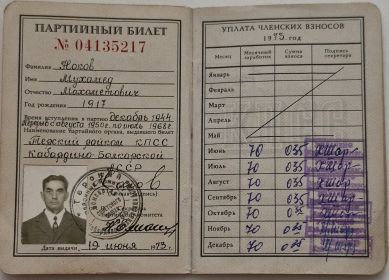 ПАРТИЙНЫЙ БИЛЕТ
№ 04135217
Фамилия Жоков
Имя Мухамед
Отчество Махометович
Год рождения 1917
Время вступления в партию декабрь 1944
Перерыв с августа 1950г. по июль 1968г.
Наименование партийного органа, выдавшего билет
Терский райком КПСС
Кабардино-Балкарской
АССР
Дата выдачи 19 июня 1973 г.
УПЛАТА ЧЛЕНСКИХ ВЗНОСОВ
1973 ГОД
Месяц Месячный заработок Сумма взноса Подпись секретаря
Январь
Февраль
Март
Апрель
Май
Июнь 70 035
Июль 70 035
Август 70 035
Сентябрь 70 035
Октябрь 70 035
Ноябрь 70 035
Декабрь 70 035